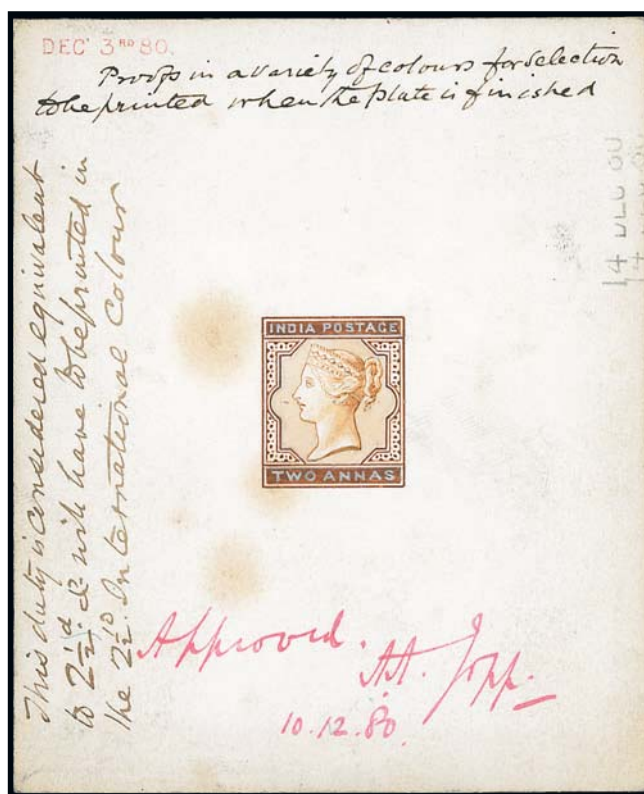 DEC' 3RD 80.
Proofs in a variety of colours for selection
to be printed when the Plate is finished
14 DEC 80
14
This duty is considered equivalent
to 2½d & will have to be printed in
the 2½d International Colour
INDIA POSTAGE
TWO ANNAS
Approved.
Jopp.
10.12.80.